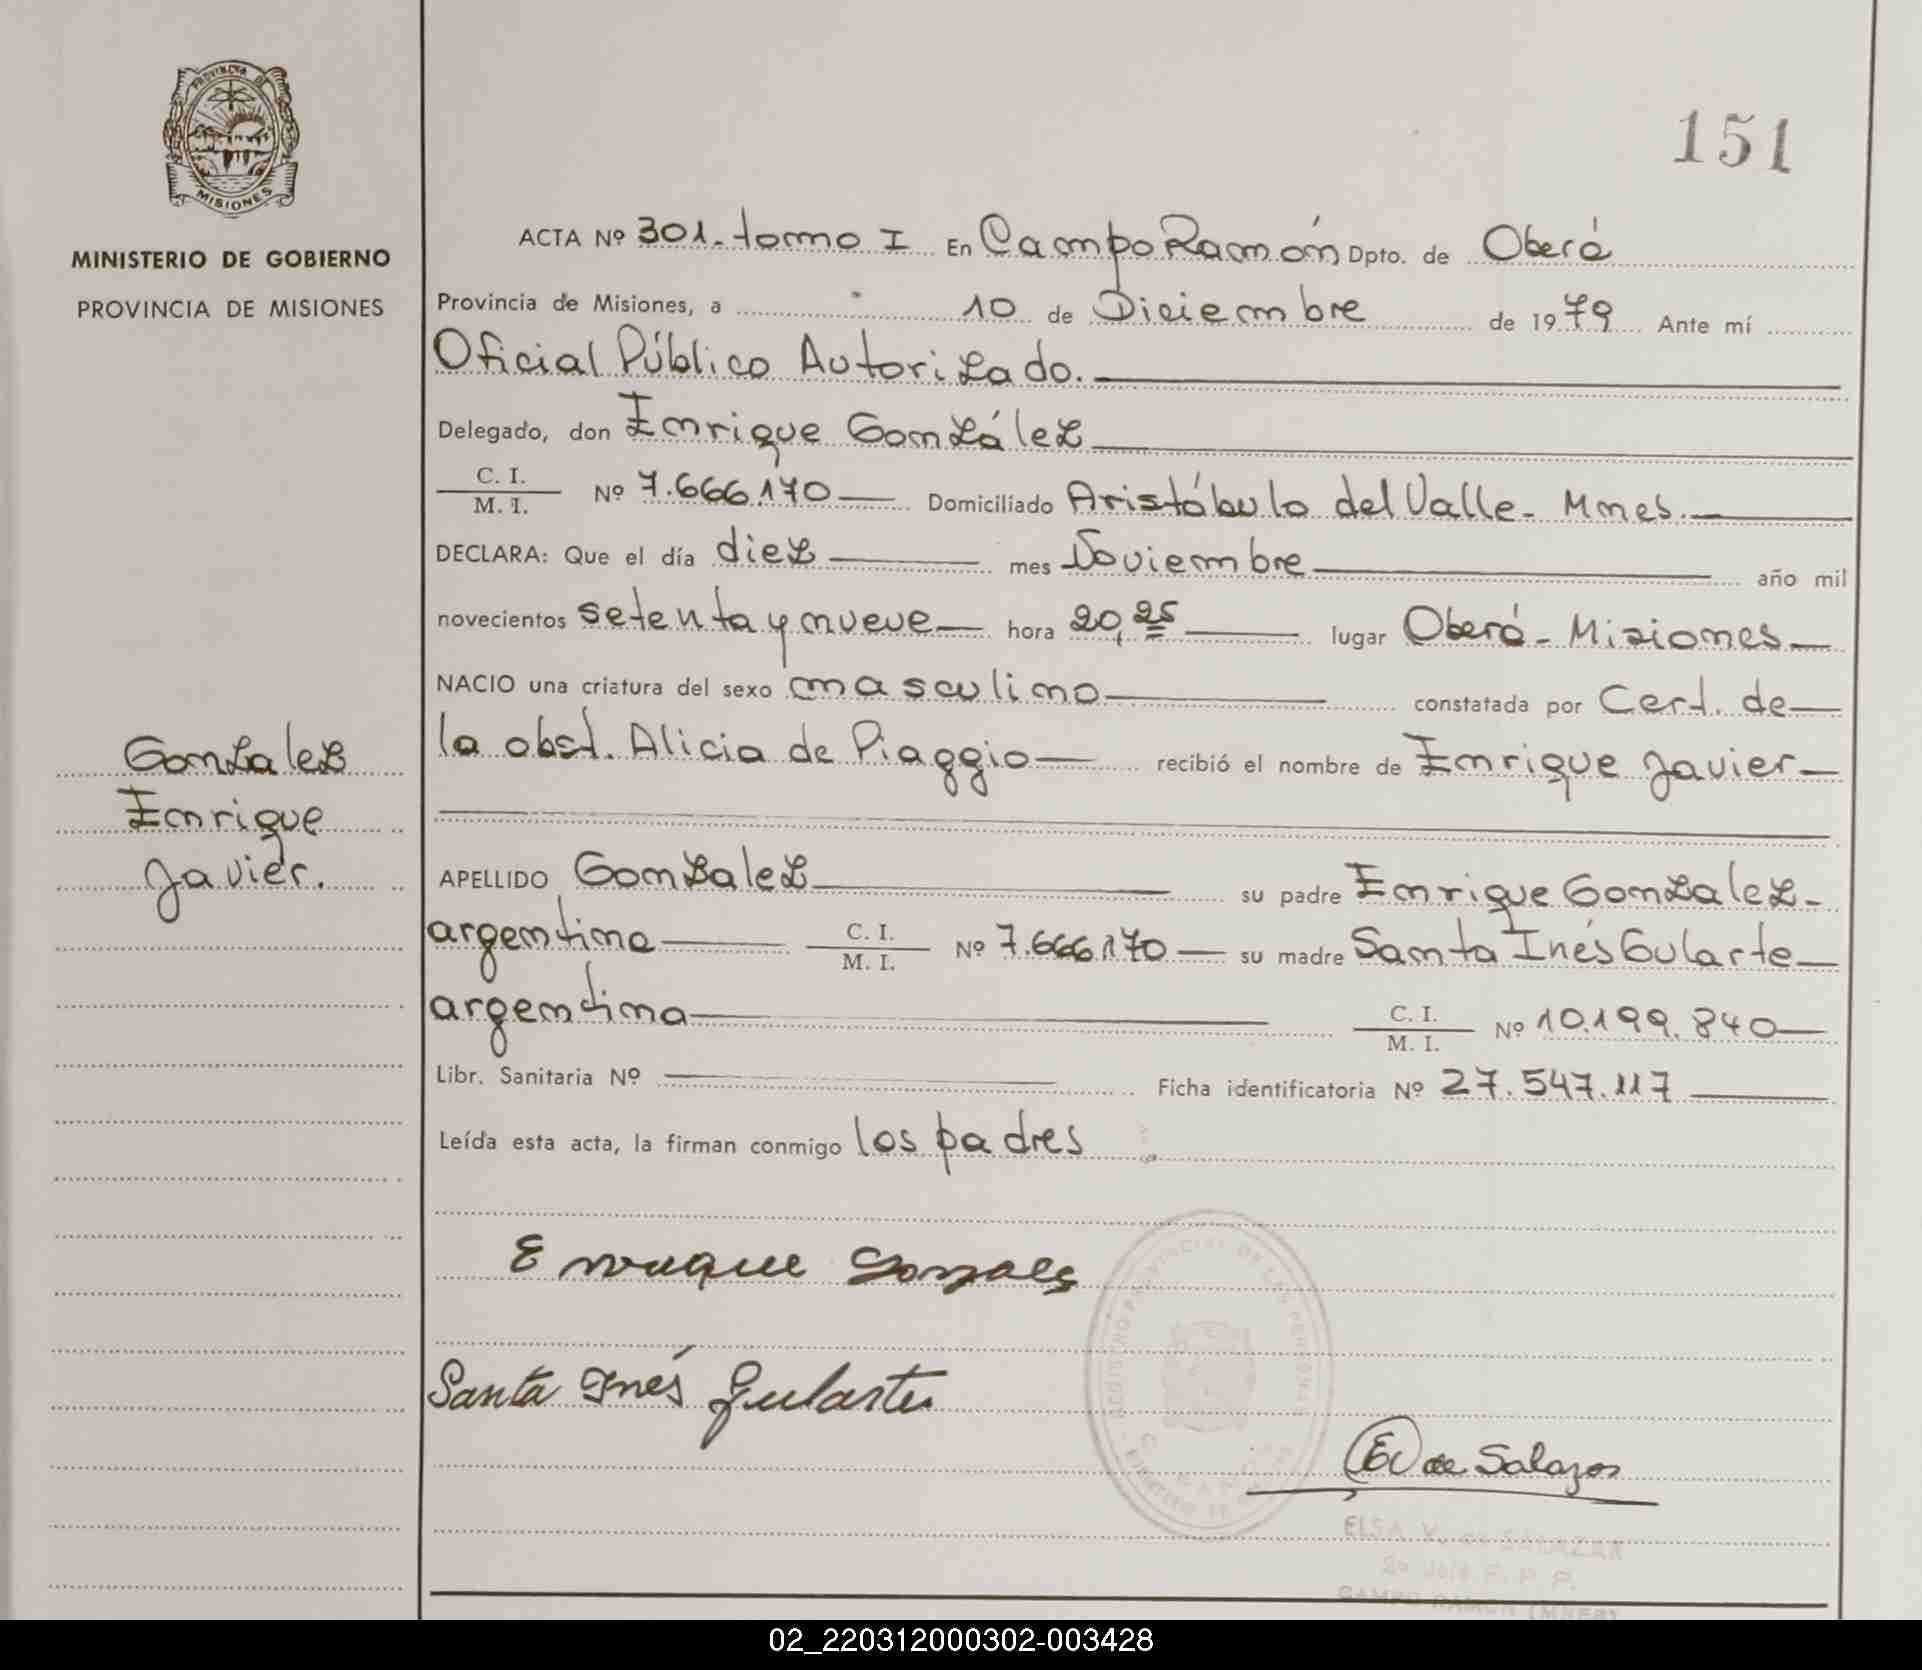 PROVINCIA DE
MISIONES
MINISTERIO DE GOBIERNO
PROVINCIA DE MISIONES
GonzaleZ
Enrique
Javier.
151
ACTA Nº 301. tomo I En Campo Ramón Dpto. de Oberá
Provincia de Misiones, a 10 de Diciembre de 1979 Ante mí
Oficial Público Autorizado.
Delegado, don Enrique González
C. I.
M. I. Nº 7.666.170 Domiciliado Aristóbulo del Valle - Mnes.
DECLARA: Que el día diez mes Noviembre año mil
novecientos setenta y nueve hora 20,25 lugar Oberá - Misiones
NACIO una criatura del sexo masculino constatada por Cert. de
la obst. Alicia de Piaggio recibió el nombre de Enrique Javier
APELLIDO Gonzalez su padre Enrique Gonzalez-
argentino C. I.
M. I. Nº 7.666.170 su madre Santa Inés Gularte
argentina C. I.
M. I. Nº 10.199.840
Libr. Sanitaria Nº Ficha identificatoria Nº 27.547.117
Leída esta acta, la firman conmigo los padres
Enrique Gonzales
Santa Inés Gularte
REGISTRO PROVINCIAL DE LAS PERSONAS
EV de Salazar
ELSA V. de SALAZAR
CAMPO RAMON (MNES)
02_220312000302-003428